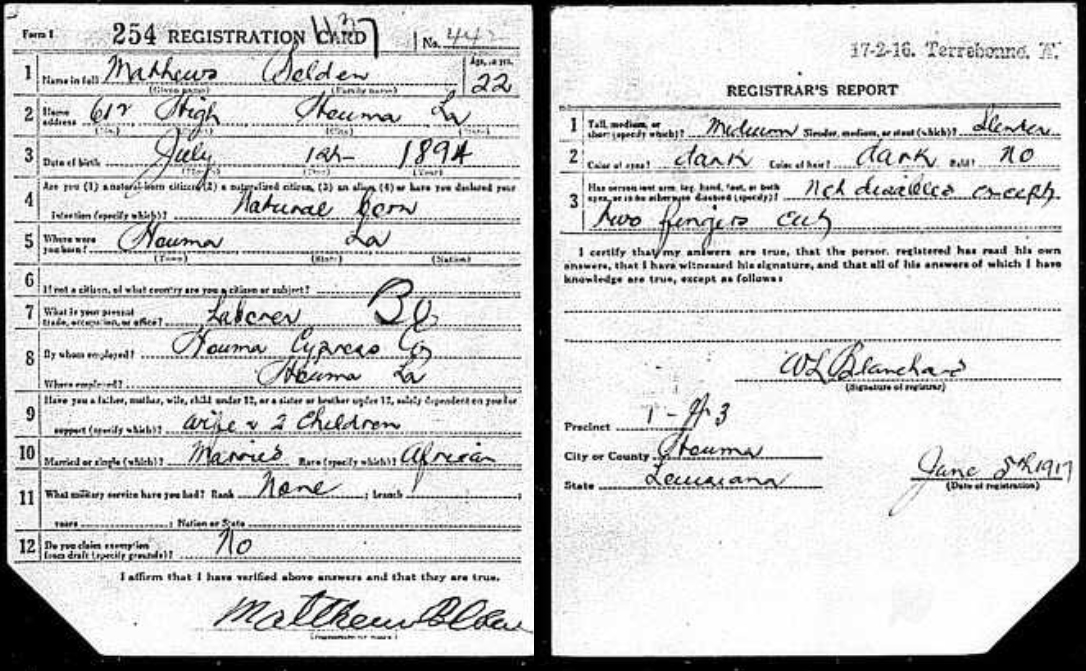 Form 1 254 REGISTRATION CARD No. 442
1 Name in full Mathews Belden Age, in yrs. 22
(Given name) (Family name)
2 Home address 612 High Houma La
(No.) (Street) (City) (State)
3 Date of birth July 12th 1894
(Month) (Day) (Year)
4 Are you (1) a natural-born citizen (2) a naturalized citizen, (3) an alien, (4) or have you declared your
intention (specify which)? Natural born
5 Where were you born? Houma La
(Town) (State) (Nation)
6 If not a citizen, of what country are you a citizen or subject?
7 What is your present trade, occupation, or office? Laborer
8 By whom employed? Houma Cypress Co
Where employed? Houma La
9 Have you a father, mother, wife, child under 12, or a sister or brother under 12, solely dependent on you for
support (specify which)? Wife & 2 Children
10 Married or single (which)? Married Race (specify which)? African
11 What military service have you had? Rank None ; branch ;
years ; Nation or State
12 Do you claim exemption from draft (specify grounds)? No
I affirm that I have verified above answers and that they are true.
Matthew
17-2-16. A.
REGISTRAR'S REPORT
1 Tall, medium, or short (specify which)? Medium Slender, medium, or stout (which)? Slender
2 Color of eyes? dark Color of hair? dark Bald? No
3 Has person lost arm, leg, hand, foot, or both
eyes, or is he otherwise disabled (specify)? Not disabled except
two fingers cut
I certify that my answers are true, that the person registered has read his own
answers, that I have witnessed his signature, and that all of his answers of which I have
knowledge are true, except as follows:
WL Blanchard
(Signature of registrar)
Precinct 1 - # 3
City or County Houma
State Louisiana
June 5th 1917
(Date of registration)